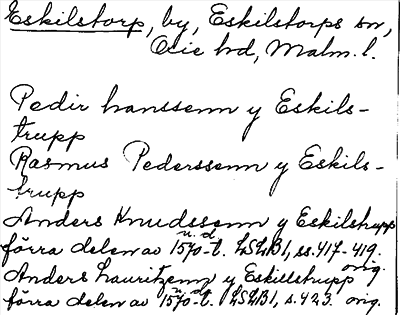 Eskilstorp, by, Eskilstorps sn,
Oxie hd, Malm. l.
Pedir hanssenn y Eskils-
trupp
Rasmus Pederssenn y Eskils-
trupp
Anders Knudssenn y Eskilstrupp
u. d.
förra delen av 1570-t. LSLB1, ss. 417-419.
orig.
Anders Lauritzenn y Eskillstrupp
u. d.
förra delen av 1570-t. LSLB1, s. 423. orig.